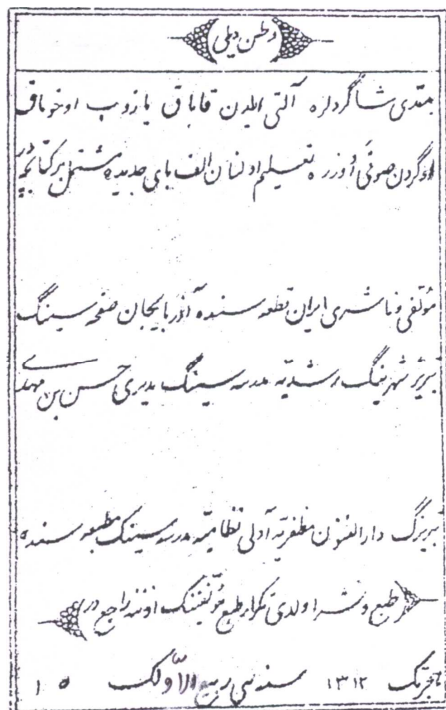 وطن دیلی
مبتدی شاگردلره آلتی ایلدن قاباق یازوب اوخوماق
اوگردن صوتی اوزره تعلیم اولنان الف بای جدیده مشتمل بر کتابچه در
مؤلفی و ناشری ایران قطعه سنده آذربایجان صفحه سینگ
تبریز شهرینگ رشدیّه مدرسه سینگ مدیری حسن بن مهدی
تبریزنگ دارالفنون مظفریّه آدلی نظامیّه مدرسه سینک مطبعه سنده
طبع و نشر اولدی تکرار طبع مؤلفینگ اوزینه راجع در
هجرتک ۱۳۱۲ سنه سی ربیع الاوّلک ۱۵